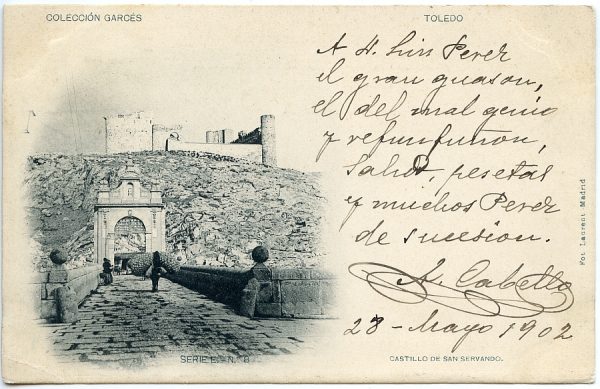 COLECCIÓN GARCÉS
TOLEDO
A D. Luis Perez
el gran guason,
el del mal genio
y refunfuñon,
Salud, pesetas
y muchos Perez
de sucesion.
A. Cabello
28 - Mayo 1902
Fot Laurent Madrid
SERIE E. - N. 8
CASTILLO DE SAN SERVANDO.